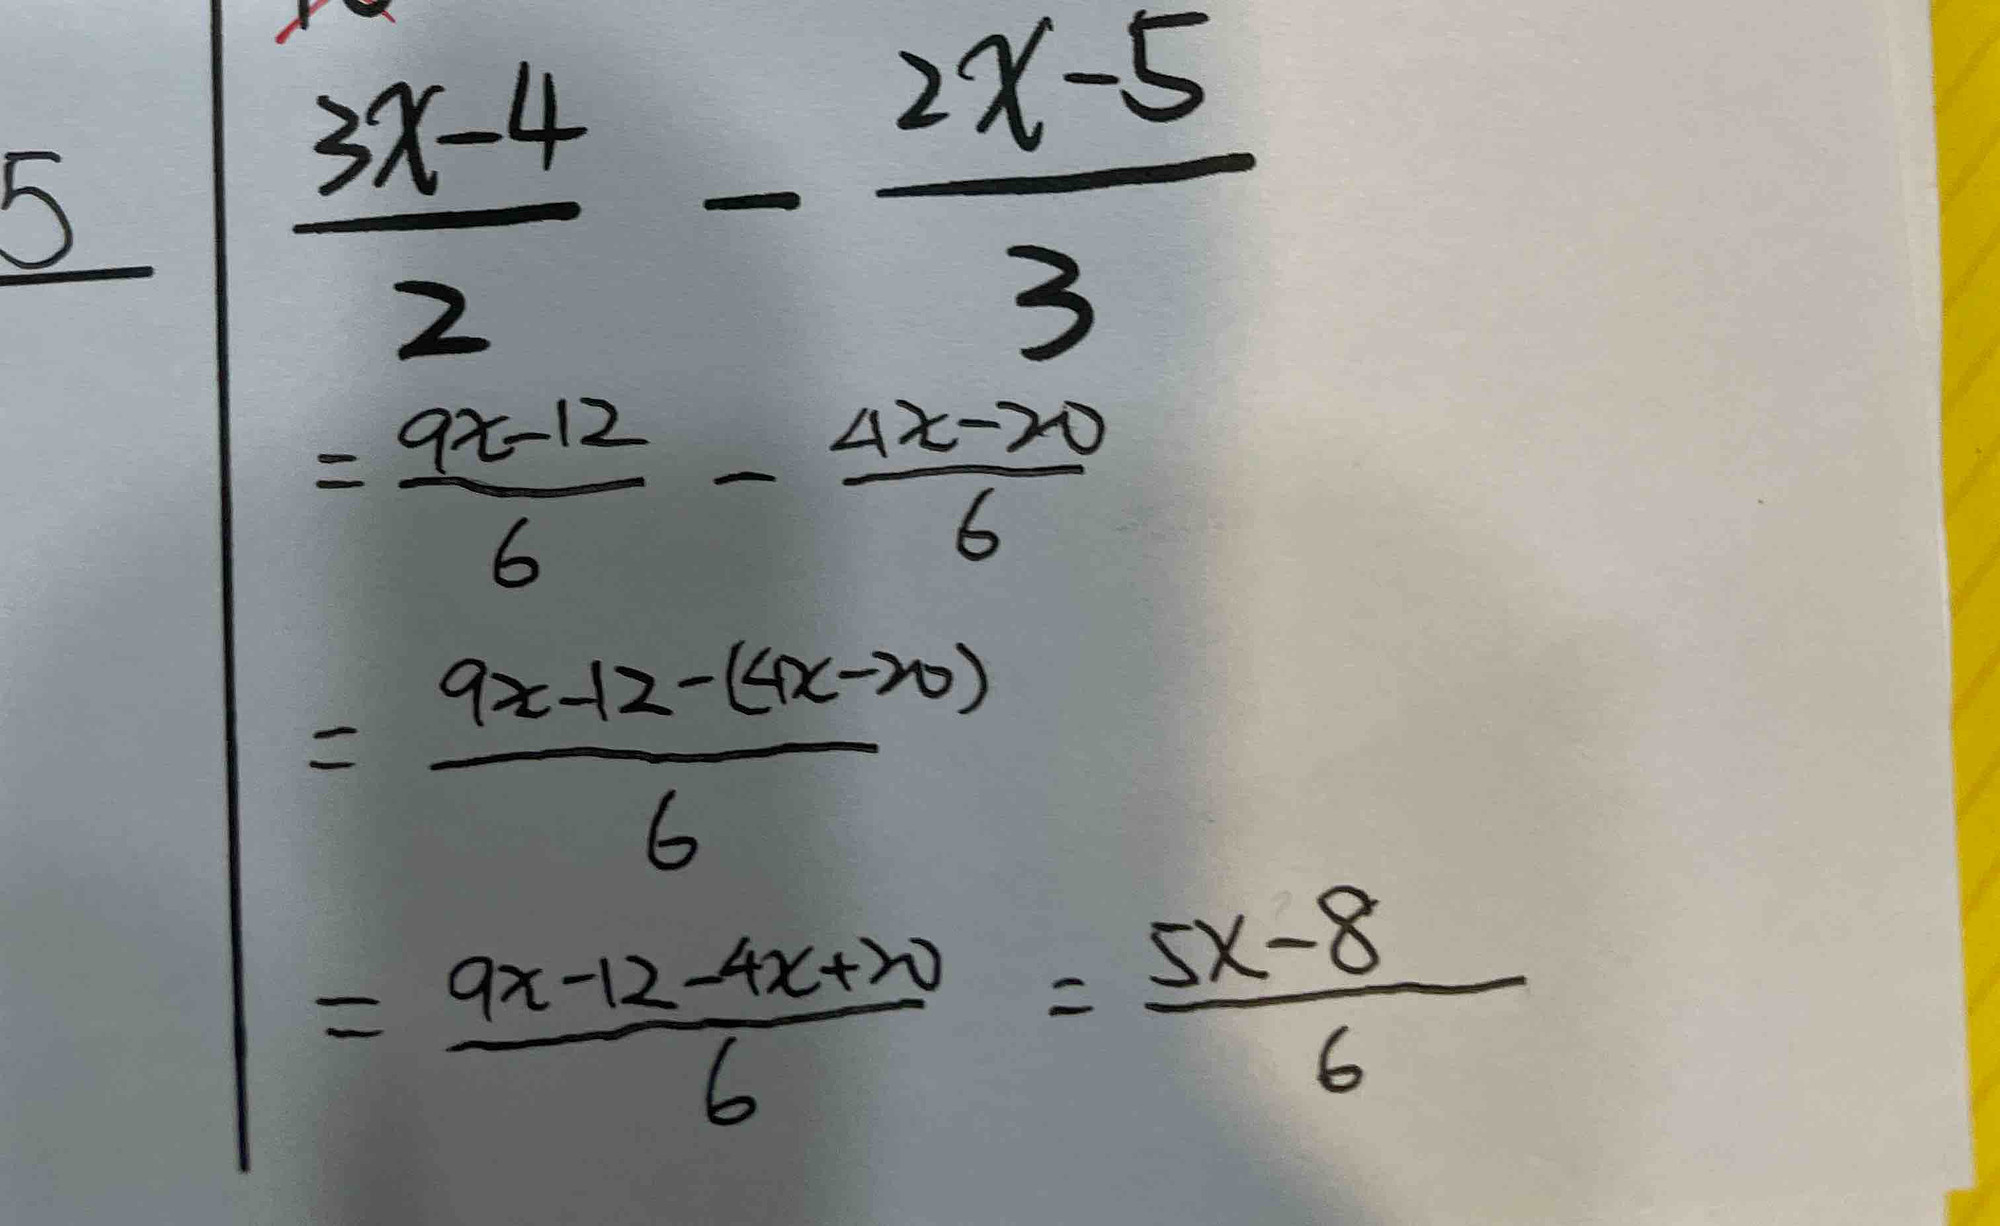 5
3x-4 / 2 - 2x-5 / 3
= 9x-12 / 6 - 4x-20 / 6
= 9x-12-(4x-20) / 6
= 9x-12-4x+20 / 6 = 5x-8 / 6